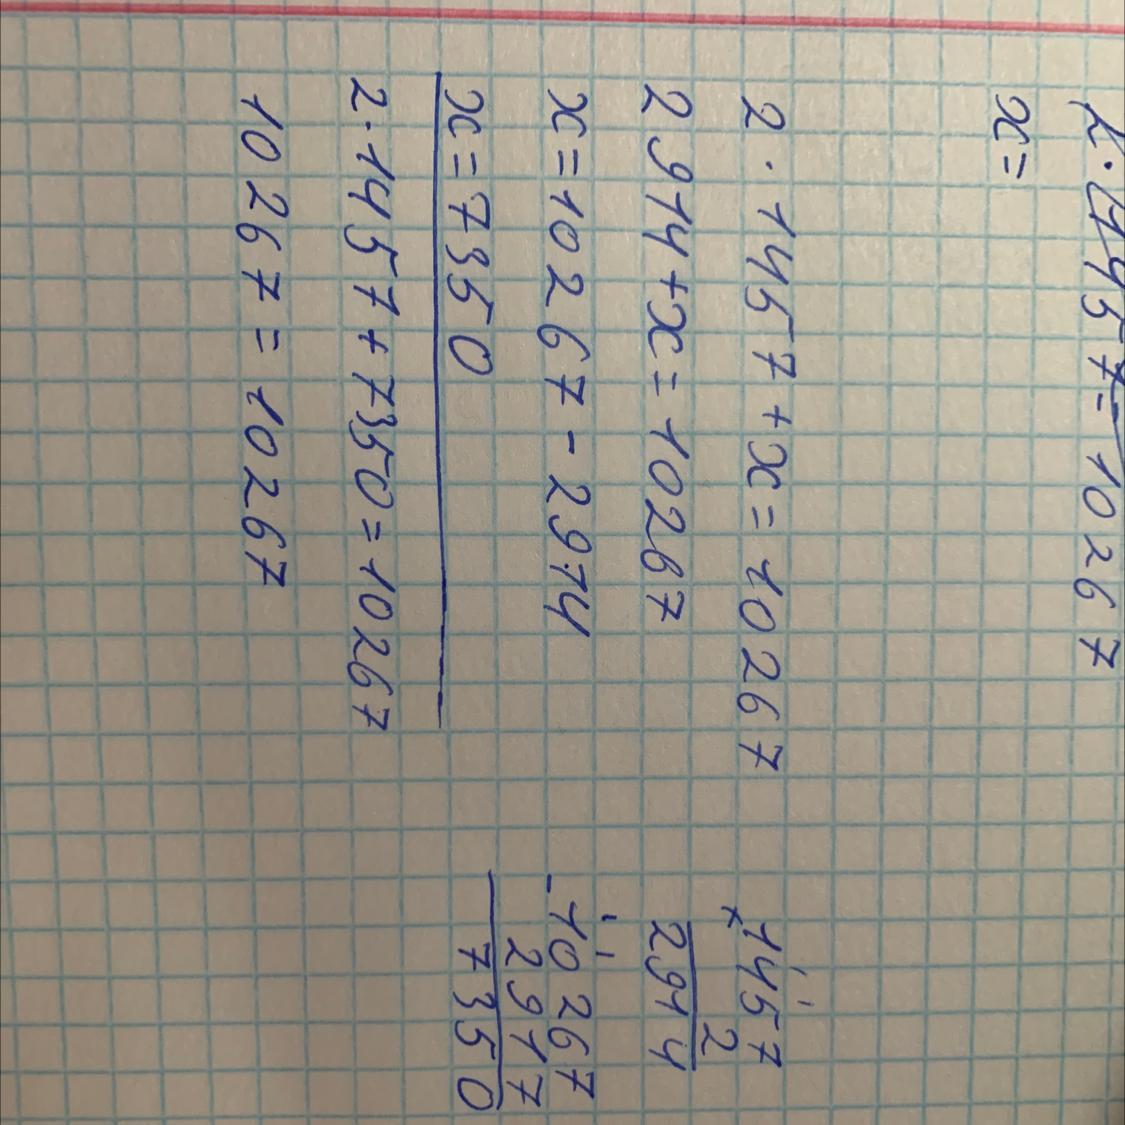 x · 1457 = 10267
x =
2 · 1457 + x = 10267
2914 + x = 10267
x = 10267 - 2914
x = 7350
2 · 1457 + 7350 = 10267
10267 = 10267
× 1457
2
2914
- 10267
2917
7350